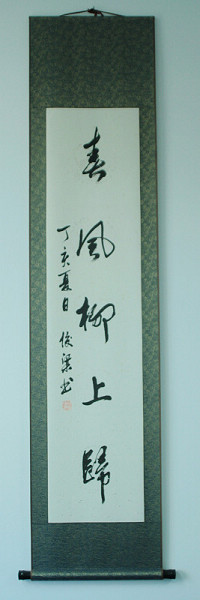 春風柳上歸
丁亥夏日 俊梁书